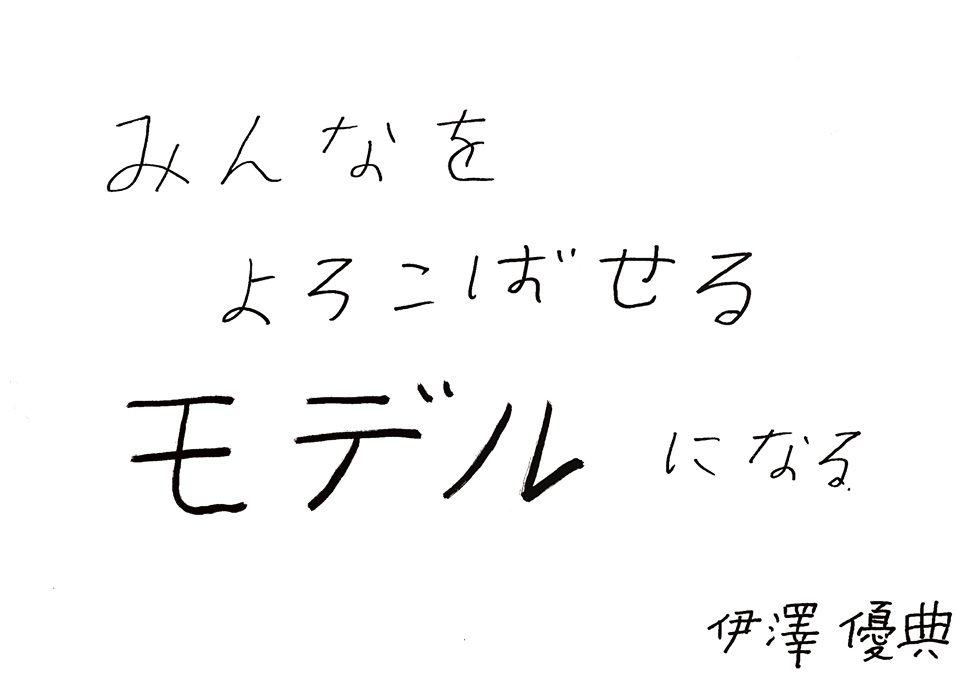 みんなを
よろこばせる
モデルになる
伊澤 優典